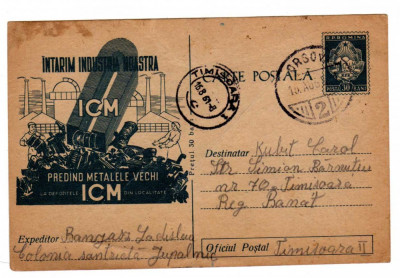 ÎNTĂRIM INDUSTRIA NOASTRĂ
ICM
PREDÎND METALELE VECHI
LA DEPOZITELE ICM DIN LOCALITATE
TIMIȘOARA 1
CARTE POȘTALĂ
ORȘOVA
2
R.P.ROMINA
POSTA 30 BANI
Prețul 30 bani
Destinatar Kubit Carol
Str Simion Bărnuțiu
nr 70 Timisoara
Reg Banat
Expeditor Ladislau
Colonia
Oficiul Poștal Timisoara II